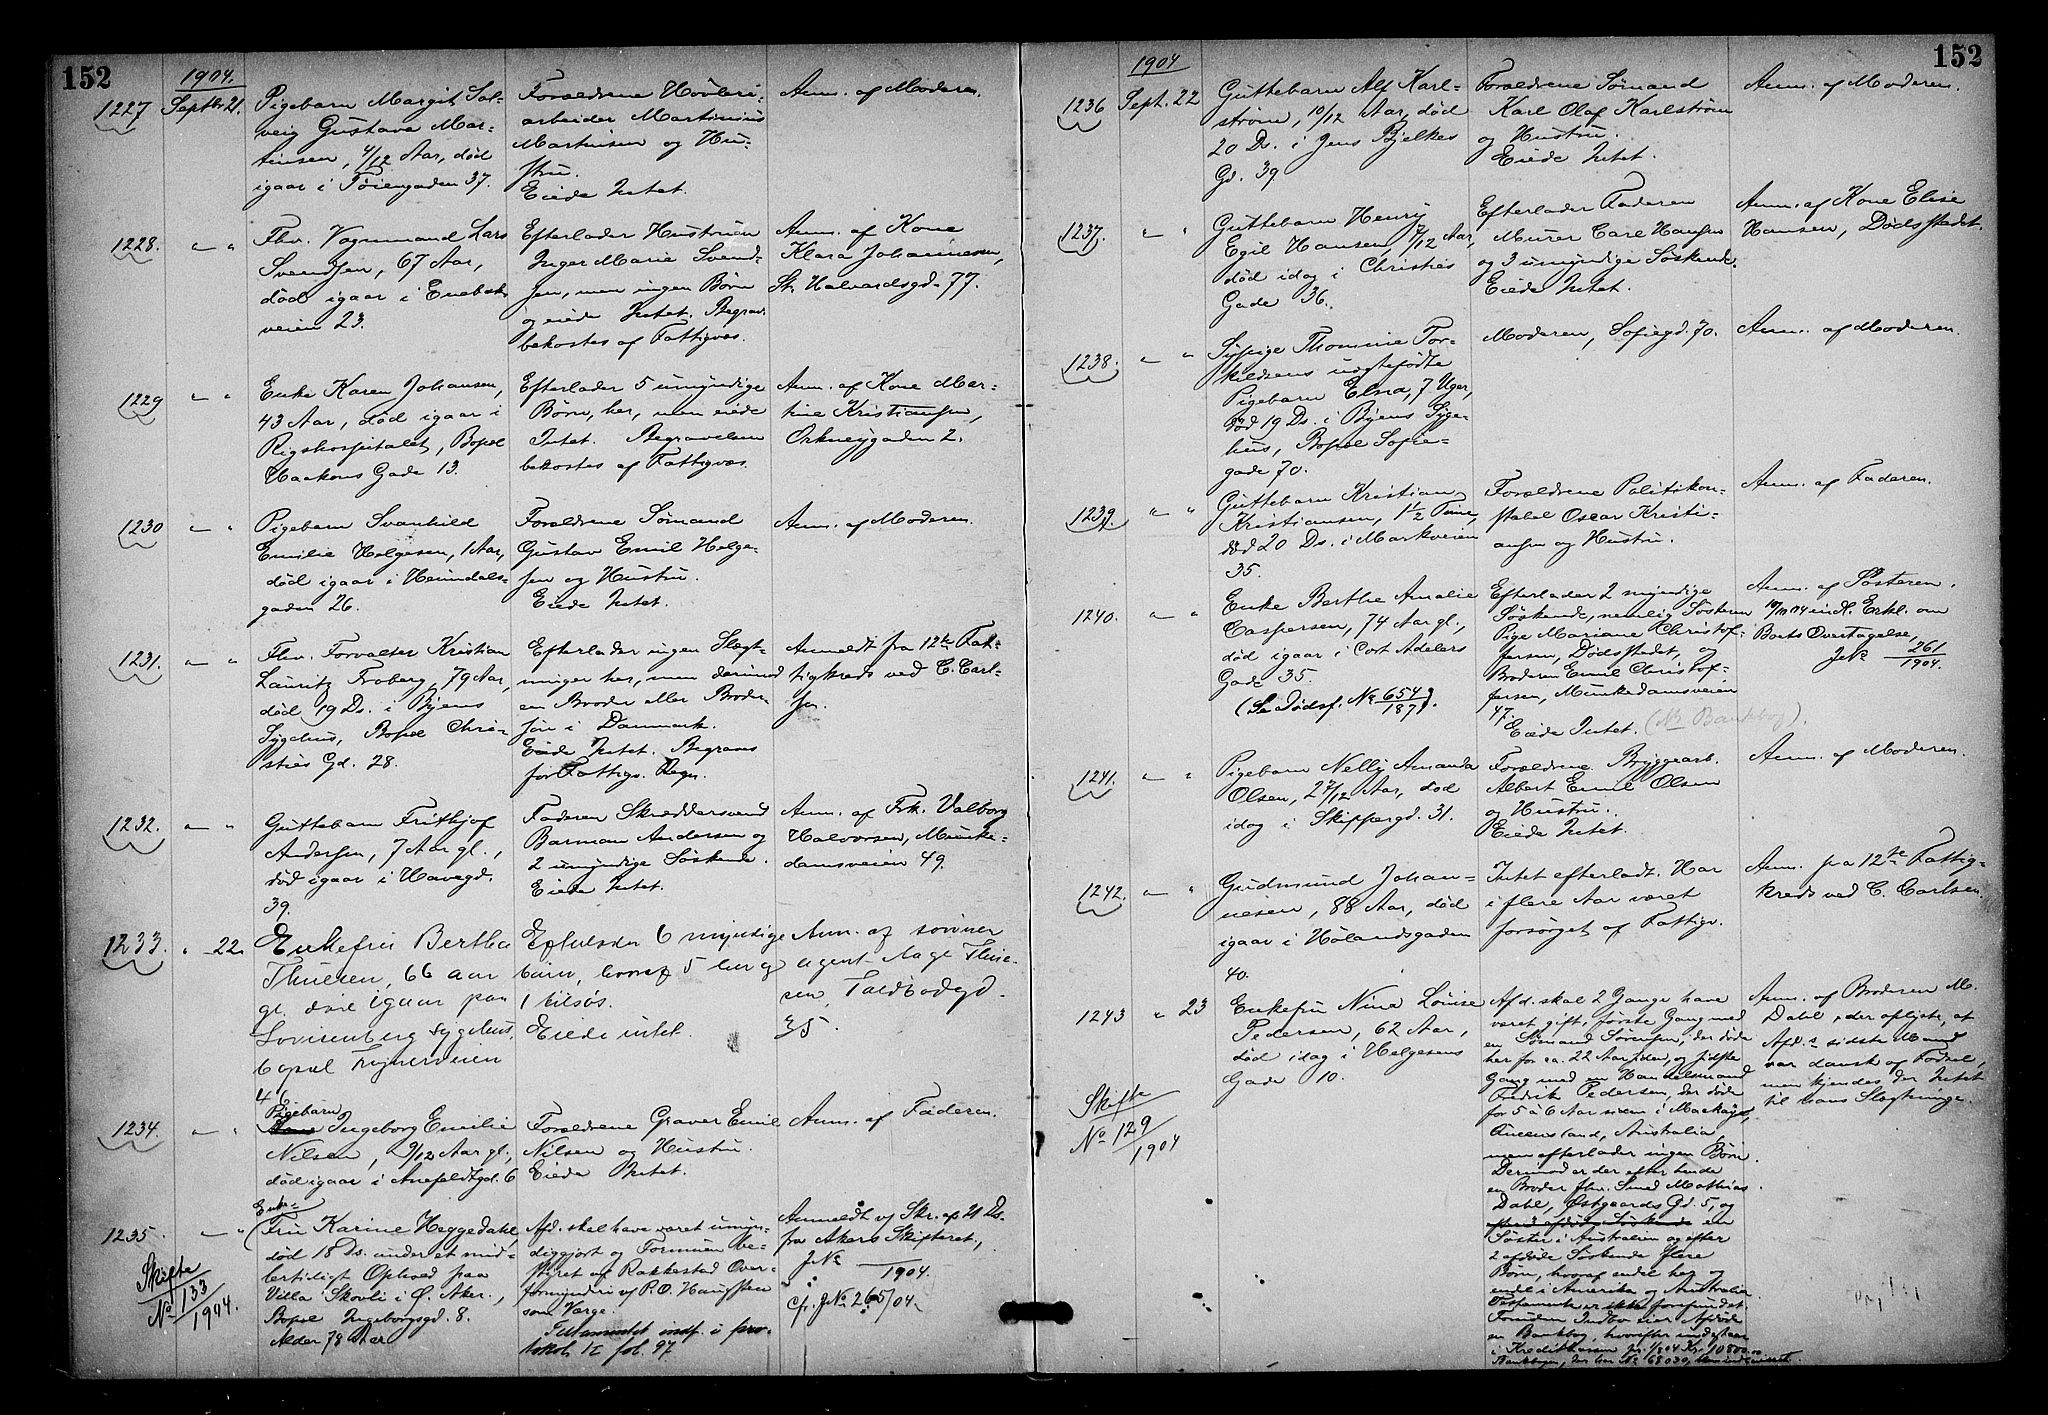 152
1904.
1227
Septbr 21.
Pigebarn Margit Sol-
veig Gustava Mar-
tinsen, 4/12 Aar, død
igaar i Tøiengaden 37.
Forældrene Høvleri-
arbeider Martinius
Martinsen og Hu-
stru.
Eiede Intet.
Anm. af Moderen.
1228.
— "
Fhv. Vognmand Lars
Svendsen, 67 Aar,
død igaar i Enebak-
veien 23.
Efterlader Hustruen
Inger Marie Svend-
sen, men ingen Børn
og eiede Intet. Begrav.
bekostes af Fattigvæs.
Anm. af Kone
Klara Johannesen,
St. Halvardsgd. 77.
1229
— "
Enke Karen Johansen,
43 Aar, død igaar i
Rigshospitalet, Bopæl
Haakons Gade 13.
Efterlader 5 umyndige
Børn, her, men eiede
Intet. Begravelsen
bekostes af Fattigvæs.
Anm. af Kone Mar-
tine Kristiansen,
Orknøygaden 2.
1230
— "
Pigebarn Svanhild
Emilie Helgesen, 1 Aar,
død igaar i Heimdals-
gaden 26.
Forældrene Sømand
Gustav Emil Helge-
sen og Hustru.
Eiede Intet.
Anm. af Moderen.
1231.
— "
Fhv. Forvalter Kristian
Lauritz Froberg, 79 Aar,
død 19 Ds. i Byens
Sygehus, Bopæl Chri-
sties Gd. 28.
Efterlader ingen Slægt-
ninger her, men derimod
en Broder eller Broder-
søn i Danmark.
Eiede Intet. Begraves
for Fattigv. Regn.
Anmeldt fra 12te Fat-
tigkreds ved C. Carl-
sen.
1232.
— "
Guttebarn Frithjof
Andersen, 7 Aar gl.,
død igaar i Havegd.
39.
Faderen Skræddersvend
Barman Andersen og
2 umyndige Søskende.
Eiede Intet.
Anm. af Frk. Valborg
Halvorsen, Munke-
damsveien 49.
1233.
" 22
Enkefru Bertha
Thuesen, 66 aar
gl. død igaar paa
Lovisenberg sygehus,
bopæl Trejnerveien
46
Efterlader 6 myndige
børn, hvoraf 5 her og
1 tilsøs.
Eiede intet.
Anm. af sønnen
agent Aage Thue-
sen, Toldbodgd.
35.
1234.
— "
Pigebarn
Ingeborg Emilie
Nilsen, 9/12 Aar gl.,
død igaar i Anefeldtgd. 6
Forældrene Graver Emil
Nilsen og Hustru.
Eiede Intet.
Anm. af Faderen.
1235.
— "
Skifte
No 133/1904.
Enke-
Fru Karine Heggedahl,
død 18 Ds. under et mid-
lertidigt Ophold paa
Villa Skovli i Ø. Aker.,
Bopæl Ingeborgsgd. 8.
Alder 78 Aar
Afd. skal have været umyn-
diggjort og Formuen be-
styret af Rakkestad Over-
formynderi v/ P. O. Haugsten
som Værge.
Testamentet indf. i pro-
tokol IX fol. 97.
Anmeldt v/ Skr. af 21 Ds.
fra Akers Skifteret,
J.No /1904.
cfr. J.No 265/04.
152
1904
1236
Sept. 22
Guttebarn Alf Karl-
strøm, 10/12 Aar, død
20 Ds. i Jens Bjelkes
Gd. 39
Forældrene Sømand
Karl Olaf Karlstrøm
og Hustru.
Eiede Intet.
Anm. af Moderen.
1237.
— "
Guttebarn Henry
Egil Hansen, 7/12 Aar,
død idag i Christies
Gade 36.
Efterlader Faderen
Murer Carl Hansen
og 3 umyndige Søskende.
Eiede Intet.
Anm. af Kone Elise
Hansen, Dødsstedet.
1238.
— "
Sypige Thomine Tor-
kildsens uægtefødte
Pigebarn Elna, 7 Uger,
død 19 Ds. i Byens Syge-
hus, Bopæl Sofie-
gade 70.
Moderen, Sofiegd. 70.
Anm. af Moderen.
1239.
" "
Guttebarn Kristian
Kristiansen, 1 1/2 Time,
død 20 Ds. i Markveien
35.
Forældrene Politikon-
stabel Oscar Kristi-
ansen og Hustru.
Anm. af Faderen.
1240.
— "
Enke Berthe Amalie
Caspersen, 74 Aar gl.,
død igaar i Cort Adelers
Gade 35.
(Se Dødsf. No 654/187).
Efterlader 2 myndige
Søskende, nemlig Søsteren
Pige Mariane Christof-
fersen, Dødsstedet, og
Broderen Emil Christof-
fersen, Munkedamsveien
47.
Eiede Intet. (NB Bankbog).
Anm. af Søsteren.
indk. Erkl. om
Boets Overtagelse,
J.No 261/1904.
1241.
— "
Pigebarn Nelly Amanda
Olsen, 2 7/12 Aar, død
idag i Skippergd. 31.
Forældrene Bryggearb.
Albert Emil Olsen
og Hustru.
Eiede Intet.
Anm. af Moderen.
1242.
— "
Gudmund Johan-
nesen, 88 Aar, død
igaar i Hølandsgaden
40.
Intet efterladt. Har
i flere Aar været
forsørget af Fattigv.
Anm. fra 12te Fattig-
kreds ved C. Carlsen.
1243
" 23
Skifte
No 129/1904
Enkefru Nina Louise
Pedersen, 62 Aar,
død idag i Helgesens
Gade 10.
Afd. skal 2 Gange have
været gift, første Gang med
en Sømand Sørensen, der døde
her for ca. 22 Aar siden, og sidste
Gang med en Handelsmand
Fredrik Pedersen, der døde
for 5 à 6 Aar siden i Mackay,
Queensland, Australia
men efterlader ingen Børn.
Derimod er der efter hende
en Broder fhv. Smed Mathias
Dahl, Østgaards Gd. 5, og
en
Søster i Australien og efter
2 afdøde Søskende flere
Børn, hvoraf endel her og
endel i Amerika og Australia.
Testamente er ikke forefundet.
Foruden Indbo eier Afdøde
en Bankbog, hvorefter indestaar
i Kreditkassen pr. 1/904 Kr. 10800.00
Bankbogen, der har No 68030,
Anm. af Broderen M.
Dahl, der oplyste, at
Afd.s sidste Mand
var dansk af Fødsel,
men kjendes der Intet
til hans Slægtninge.